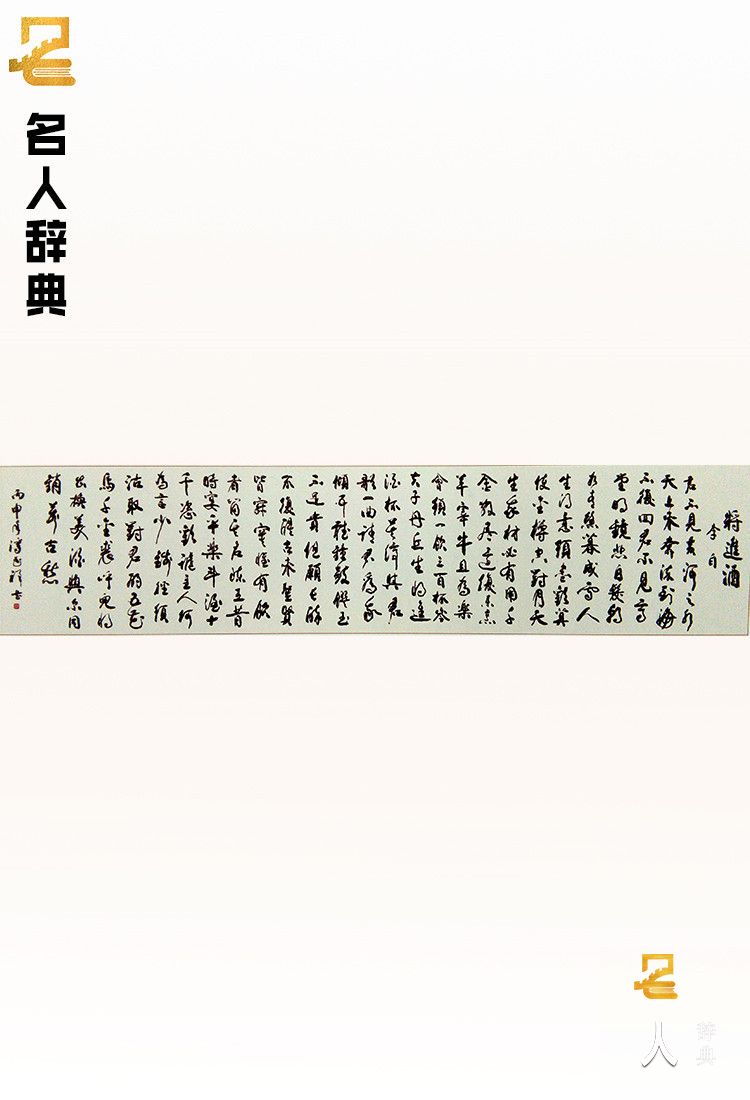 名人辞典
將進酒
李白
君不見黄河之水
天上来奔流到海
不復回君不見高
堂明鏡悲白髮朝
如青絲暮成雪人
生得意須盡歡莫
使金樽空對月天
生我材必有用千
金散盡還復来烹
羊宰牛且為樂
會須一飲三百杯岑
夫子丹丘生将進
酒杯莫停與君
歌一曲請君為我
傾耳聽鐘鼓饌玉
不足貴但願長醉
不復醒古来聖賢
皆寂寞惟有飲
者留其名陳王昔
時宴平樂斗酒十
千恣歡謔主人何
為言少錢徑須
沽取對君酌五花
馬千金裘呼兒将
出換美酒與尔同
銷萬古愁
丙申年
書
人
辞典